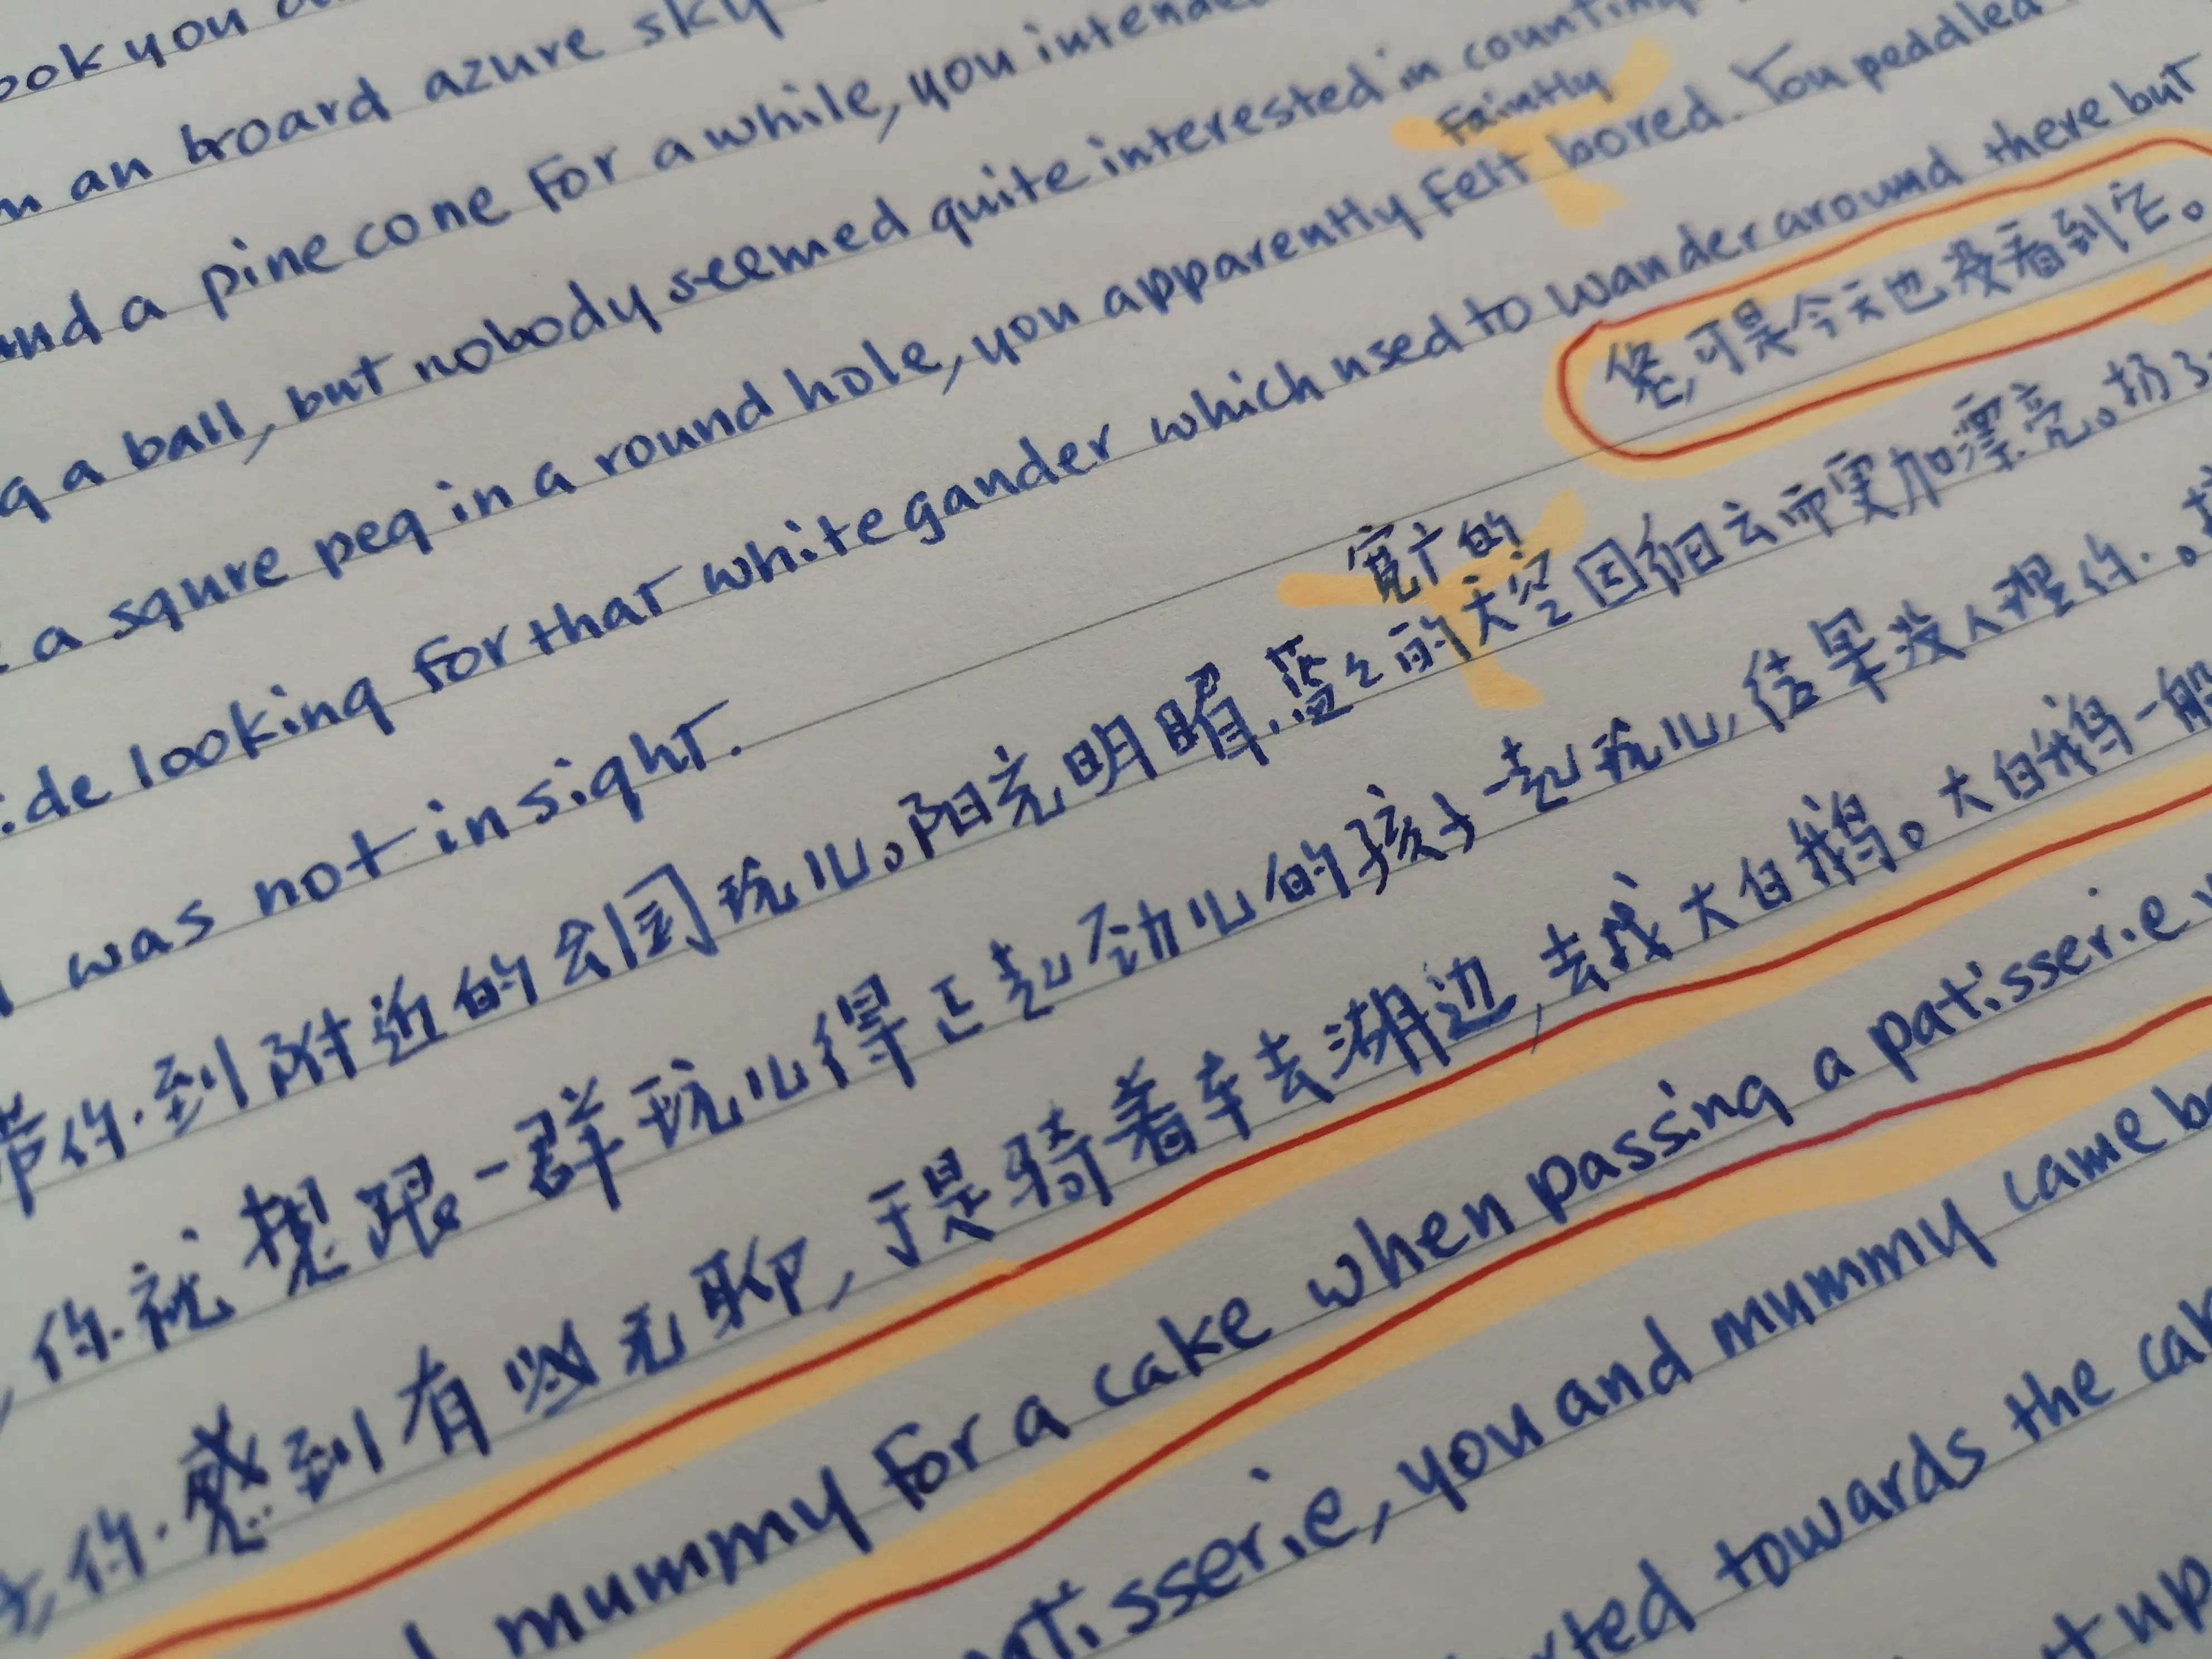 ook you
an board azure sky
a pine cone for a while, you intende
q a ball, but nobody seemed quite interested in counting
faintly
a squre peg in a round hole, you apparently felt bored. You peddled
ide looking for that white gander which used to wander around there but
was not in sight.
您,可是今天也没看到它。
宽广的
带你到附近的公园玩儿。阳光明媚,蓝々的天空因细云而更加漂亮。扔了
你就想跟一群玩儿得正起劲儿的孩子一起玩儿,结果没人理你。
你感到有些无聊,于是骑着车去湖边,去找大白鹅。大白鹅一般
mummy for a cake when passing a patisserie
tisserie, you and mummy came b
rted towards the cak
t up